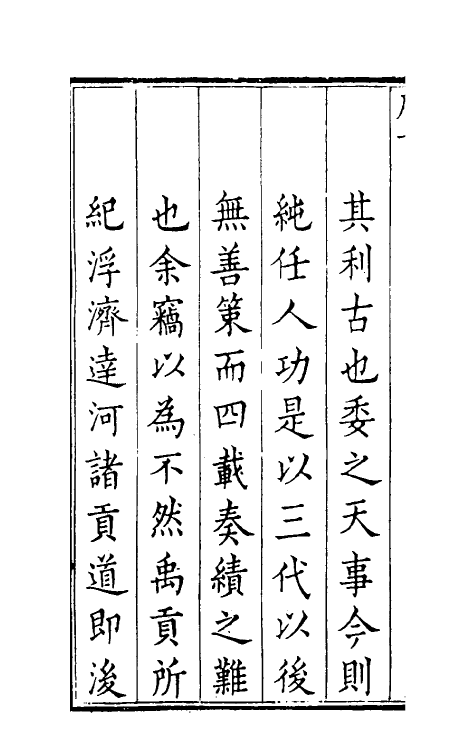 其利古也委之天事今則
純任人功是以三代以後
無善策而四載奏績之難
也余竊以為不然禹貢所
紀浮濟達河諸貢道即後